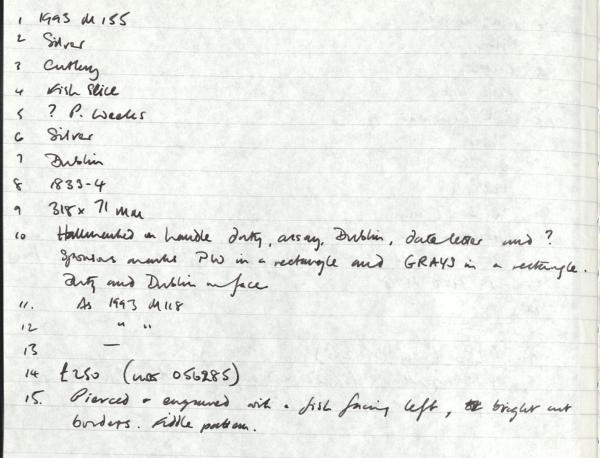 1 1993 M 155
2 Silver
3 Cutlery
4 Fish Slice
5 ? P. Weekes
6 Silver
7 Dublin
8 1833-4
9 318 x 71 mm
10 Hallmarked on handle duty, assay, Dublin, date letter and ?
Sponsors marks PW in a rectangle and GRAYS in a rectangle.
Duty and Dublin on face
11. As 1993 M118
12 " "
13 —
14 £250 (nos 056285)
15. Pierced & engraved with a fish facing left, bright cut
borders. Fiddle pattern.